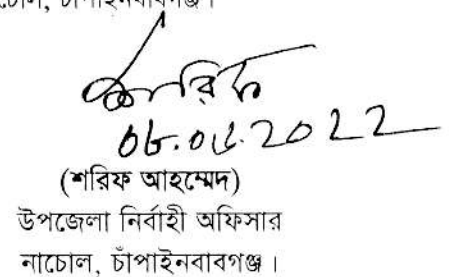 নাচোল, চাঁপাইনবাবগঞ্জ।
শরিফ
(শরিফ আহম্মেদ)
উপজেলা নির্বাহী অফিসার
নাচোল, চাঁপাইনবাবগঞ্জ।